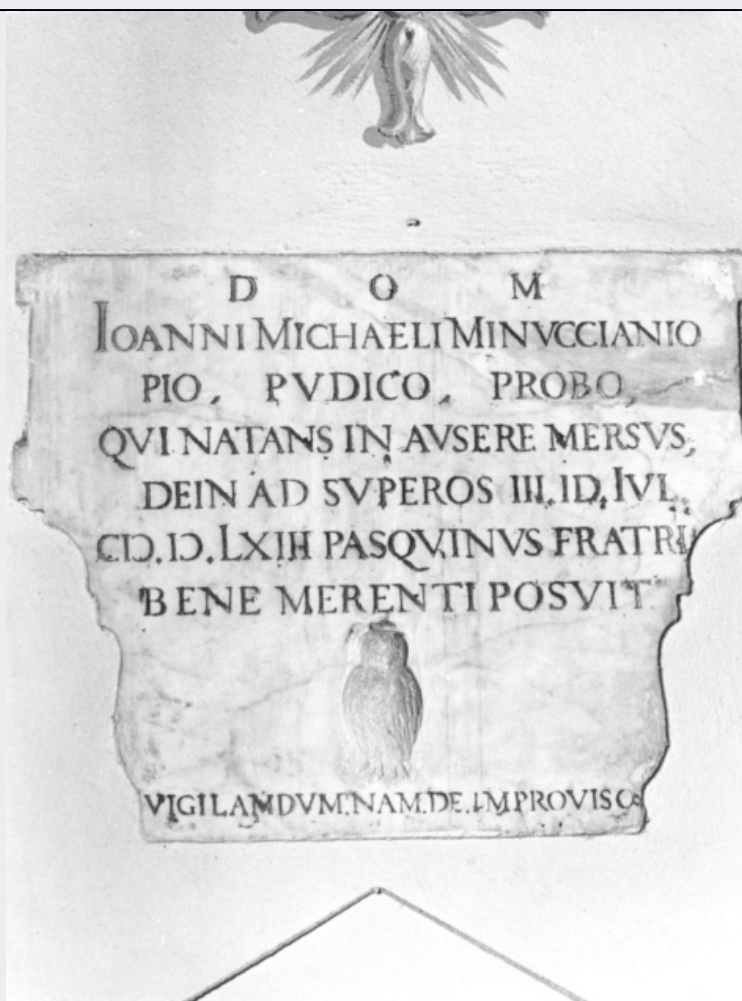 D O M
IOANNI MICHAELI MINVCCIANIO
PIO, PVDICO, PROBO,
QVI NATANS IN AVSERE MERSVS,
DEIN AD SVPEROS III. ID. IVL.
CIƆ. IƆ. LXIII PASQVINVS FRATRI
BENE MERENTI POSVIT
VIGILAMDVM. NAM. DE. IMPROVISO